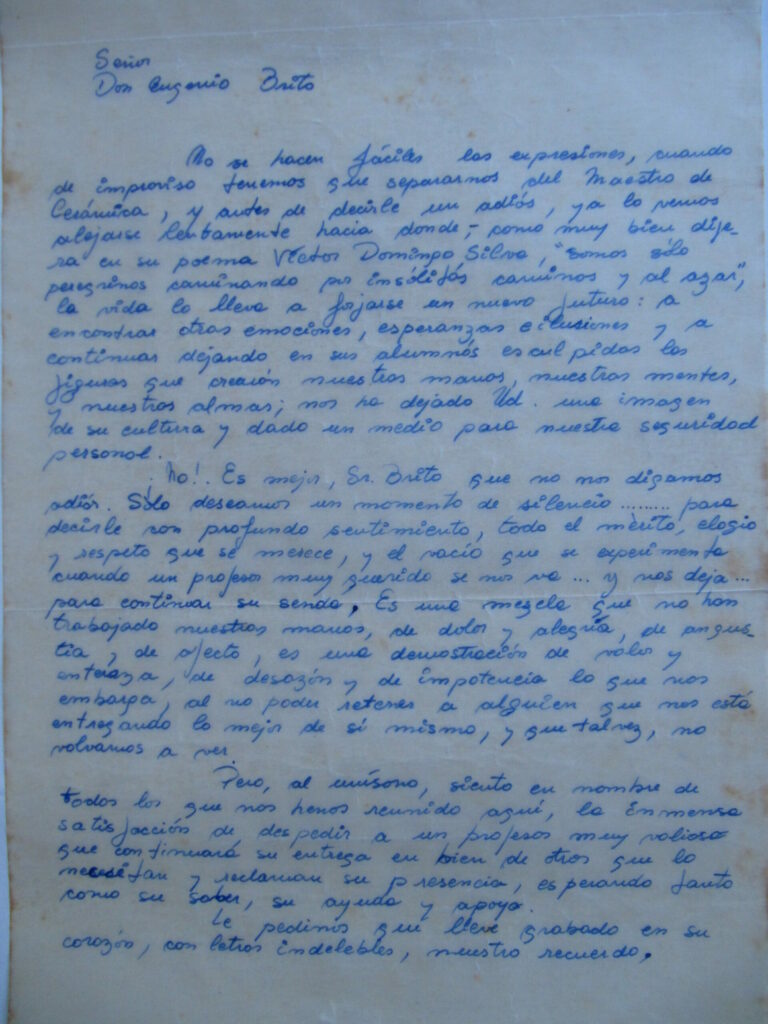 Señor
Don Eugenio Brito
No se hacen fáciles las expresiones, cuando
de improviso tenemos que separarnos del Maestro de
Cerámica, y antes de decirle un adiós, ya lo vemos
alejarse lentamente hacia donde, como muy bien dije-
ra en su poema Víctor Domingo Silva, "somos sólo
peregrinos caminando por insólitos caminos y al azar",
la vida lo lleva a forjarse un nuevo futuro: a
encontrar otras emociones, esperanzas e ilusiones y a
continuar dejando en sus alumnos esculpidas las
figuras que creación nuestras manos, nuestras mentes,
y nuestros almas; nos ha dejado Ud. una imagen
de su cultura y dado un medio para nuestra seguridad
personal.
¡No!. Es mejor, Sr. Brito que no nos digamos
adiós. Sólo deseamos un momento de silencio ......... para
decirle con profundo sentimiento, todo el mérito, elogio
y respeto que se merece, y el vacío que se experimenta
cuando un profesor muy querido se nos va ... y nos deja ...
para continuar su senda. Es una mezcla que no han
trabajado nuestras manos, de dolor y alegría, de angus-
tia y de afecto, es una demostración de valor y
entereza, de desazón y de impotencia lo que nos
embarga, al no poder retener a alguien que nos está
entregando lo mejor de sí mismo, y que tal vez, no
volvamos a ver.
Pero, al unísono, siento en nombre de
todos los que nos hemos reunido aquí, la inmensa
satisfacción de despedir a un profesor muy valioso
que continuará su entrega en bien de otros que lo
necesitan y reclaman su presencia, esperando tanto
como su saber, su ayuda y apoyo.
Le pedimos que lleve grabado en su
corazón, con letras indelebles, nuestro recuerdo.